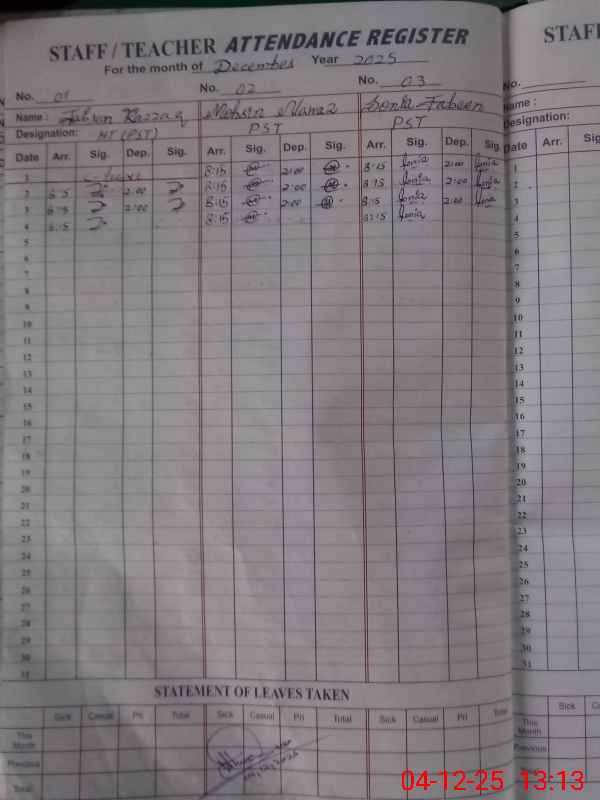 STAFF / TEACHER ATTENDANCE REGISTER
For the month of December Year 2025
No. 01 No. 02 No. 03
Name : Razzaq Mohsin Nawaz Sonia
Designation: HT (PST) PST PST
Date Arr. Sig. Dep. Sig. Arr. Sig. Dep. Sig. Arr. Sig. Dep. Sig.
1 C-leave 8:15 2:00 8:15 Sonia 2:00 Sonia
2 8:15 2:00 8:15 2:00 8:15 Sonia 2:00 Sonia
3 8:15 2:00 8:15 2:00 8:15 Sonia 2:00 Sonia
4 8:15 8:15 8:15 Sonia
5
6
7
8
9
10
11
12
13
14
15
16
17
18
19
20
21
22
23
24
25
26
27
28
29
30
31
STATEMENT OF LEAVES TAKEN
Sick Casual Pri Total Sick Casual Pri Total Sick Casual Pri Total
This Month
Previous
Total
STAFF
No.
Name :
Designation:
Date Arr. Sig
1
2
3
4
5
6
7
8
9
10
11
12
13
14
15
16
17
18
19
20
21
22
23
24
25
26
27
28
29
30
31
Sick
This Month
Previous
Total
04-12-25 13:13